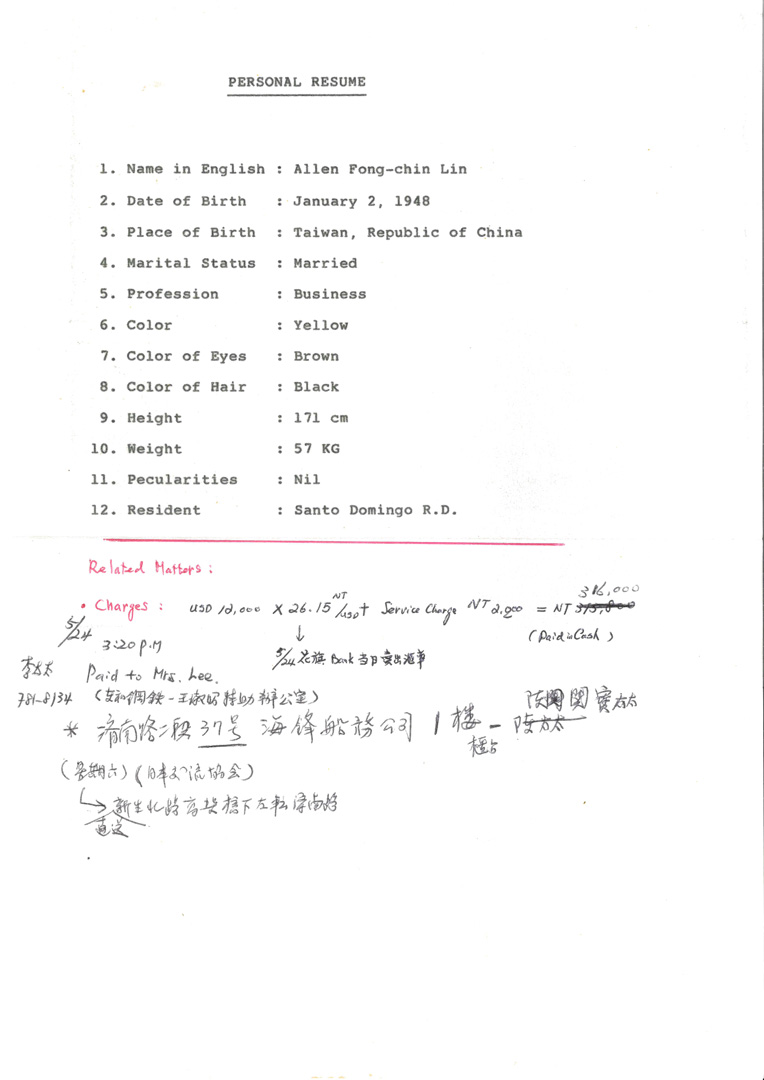 PERSONAL RESUME
1. Name in English : Allen Fong-chin Lin
2. Date of Birth : January 2, 1948
3. Place of Birth : Taiwan, Republic of China
4. Marital Status : Married
5. Profession : Business
6. Color : Yellow
7. Color of Eyes : Brown
8. Color of Hair : Black
9. Height : 171 cm
10. Weight : 57 KG
11. Pecularities : Nil
12. Resident : Santo Domingo R.D.
Related Matters :
316,000
• Charges : USD 12,000 X 26.15 NT/USD + Service Charge NT 2,200 = NT
(Paid in Cash)
5/24 3:20 P.M
5/24 花旗 Bank 当日賣出滙率
李太太 Paid to Mrs. Lee.
781-8134
公室)
* 濟南路二段 37号 海鋒船務公司 1樓 - 陳 太太
櫃台
(星期六) (日本交流協会)
新生北路高架橋下左転濟南路
直走